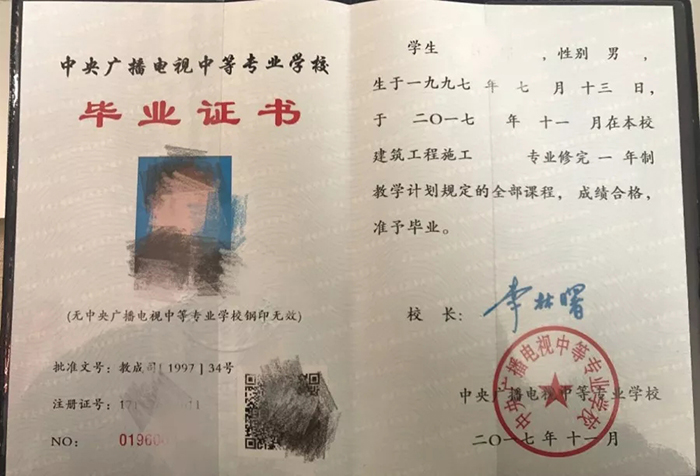 中央广播电视中等专业学校
毕业证书
(无中央广播电视中等专业学校钢印无效)
批准文号: 教成司[1997]34号
注册证号:
NO: 01960
学生 , 性别 男 ,
生于一九九七 年 七 月 十三 日,
于 二〇一七 年 十一 月在本校
建筑工程施工 专业修完 一 年制
教学计划规定的全部课程, 成绩合格,
准予毕业。
校 长: 李林曙
中央广播电视中等专业学校
中央广播电视中等专业学校
二〇一七年 十一月